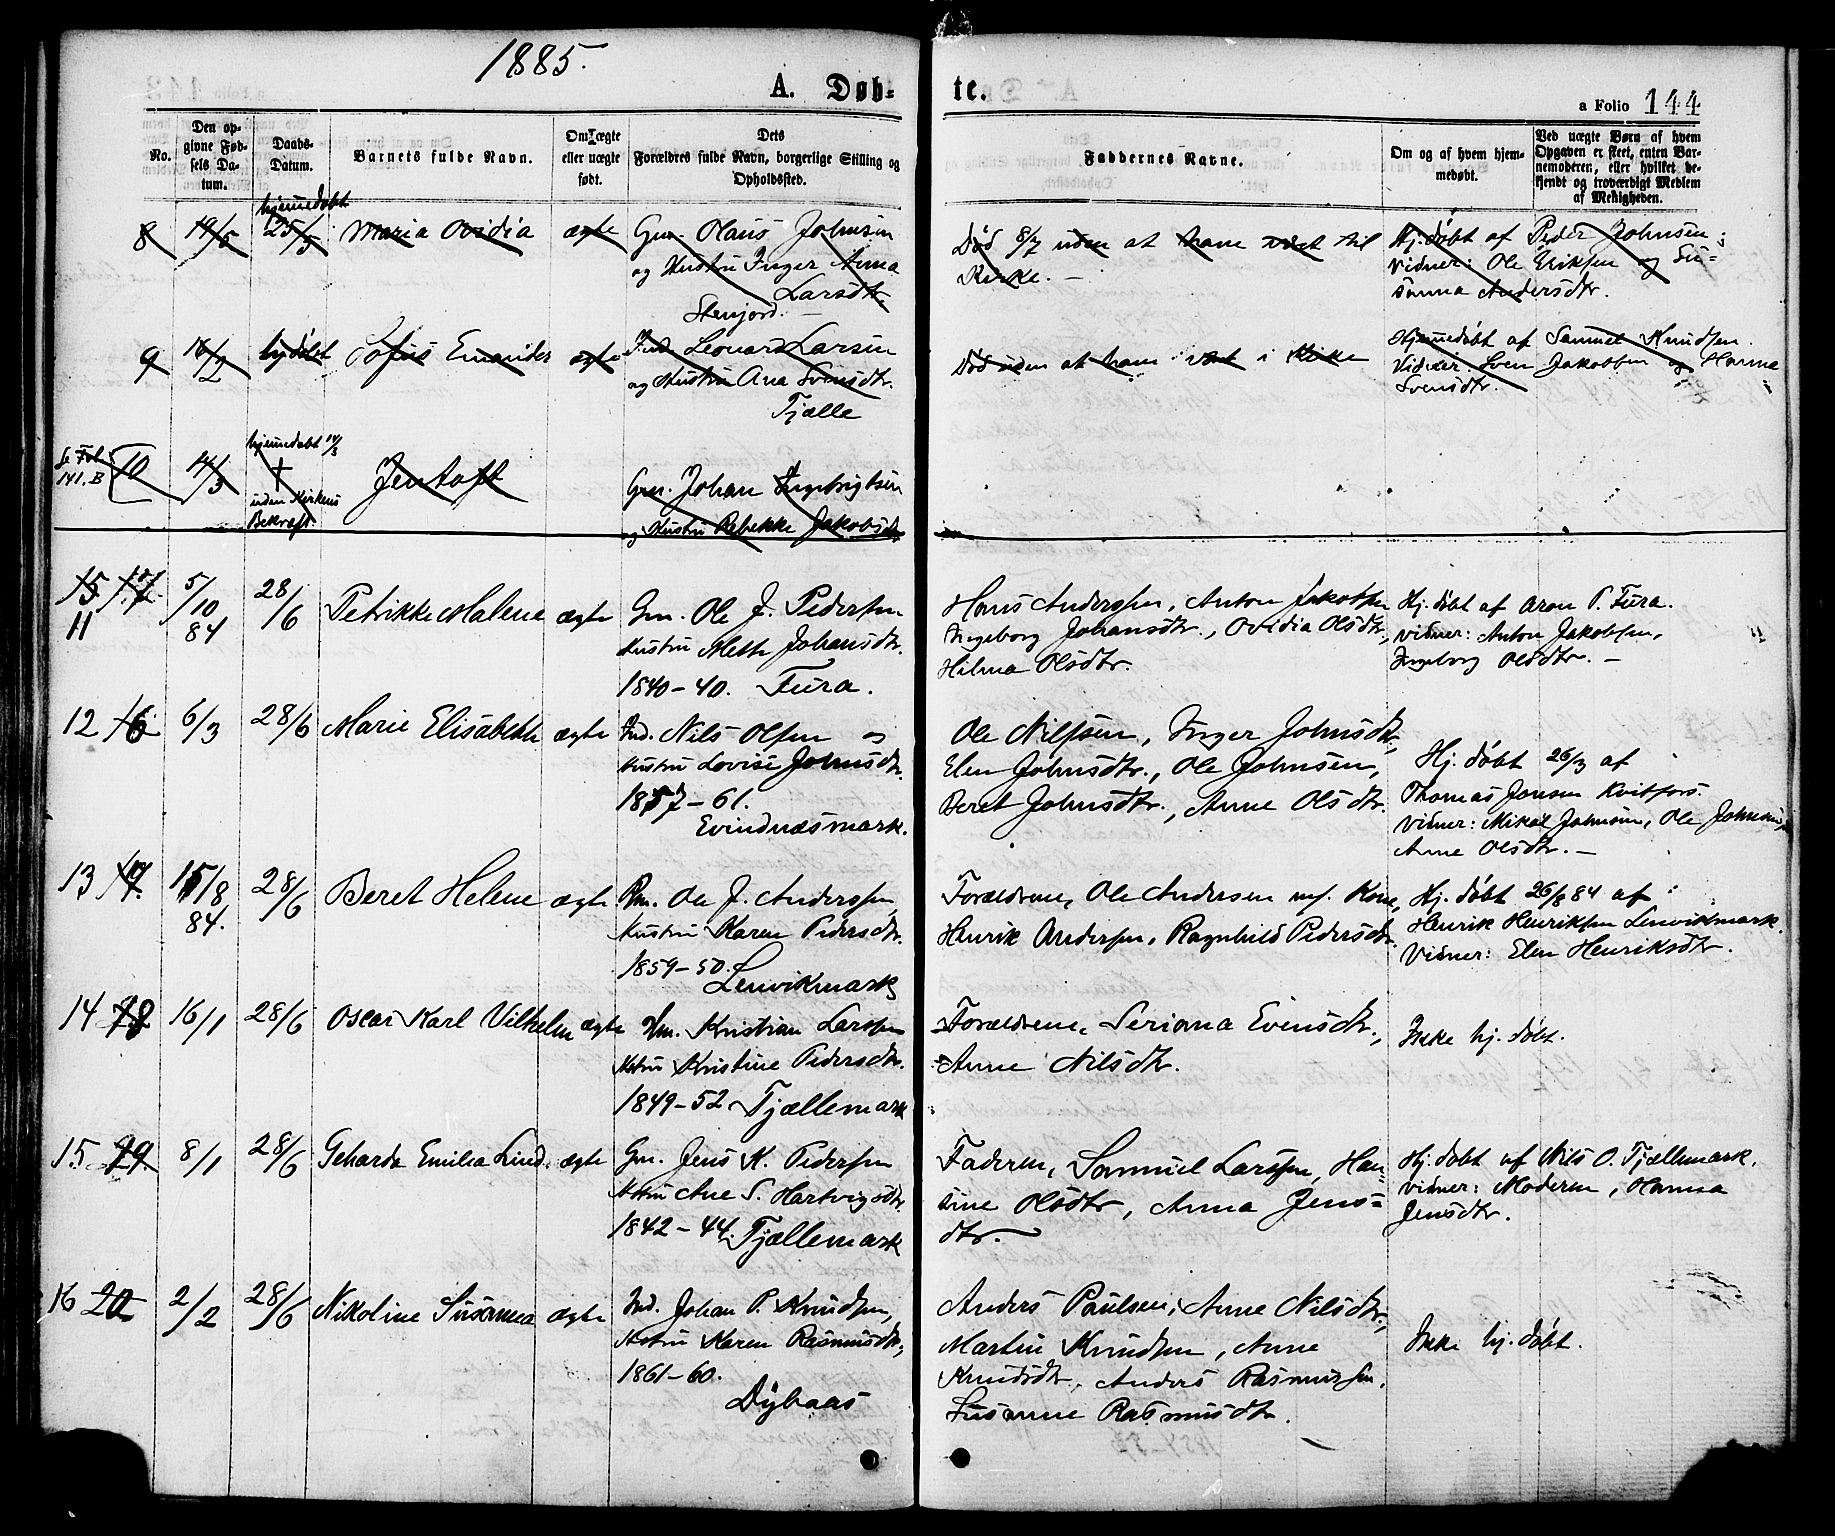 1885.
A. Døb-
te.
a Folio 144
No.
Den op-
givne Fød-
sels Da-
tum.
Daabs-
Datum.
Barnets fulde Navn.
Om ægte
eller uægte
født.
Dets
Forældres fulde Navn, borgerlige Stilling og
Opholdssted.
Faddernes Navne.
Om og af hvem hjem-
medøbt.
Ved uægte Børn af hvem
Opgaven er skeet, enten Bar-
nemoderen, eller hvilket be-
kjendt og troværdigt Medlem
af Menigheden.
hjemmedøbt
8 19/5 25/5 Maria Ovidia ægte
Gm. Olaus Johnsen
og Hustru Inger Anna
Larsdtr.
Stenjord. —
Død 8/7 uden at have været til
Kirke. —
Hj. døbt af Peder Johnsen;
Vidner: Ole Eriksen og Su-
sanna Andersdtr.
9 16/2 ægte
Ind. Leonard Larsen
og Hustru Ana Svensdtr.
Fjælle
Død uden at have været i Kirke
Hjemmedøbt af Samuel Knudsen.
Vidner: Sven Jakobsen og Hanna
Svensdtr.
Se Fol.
141. B
10 14/3
hjemmedøbt 14/3
†
uden Kirkens
Bekræft.
Jentoft
Gm. Johan Ingebrigtsen
og Hustru Rebekke Jakobsdtr.
15 17
11
5/10
84
28/6 Petrikke Malene ægte
Gm. Ole J. Pedersen
Hustru Mette Johansdtr.
1840-40. Fura.
Hans Anderssen, Anton Jakobsen
Ingeborg Johansdtr., Ovidia Olsdtr.,
Hilma Olsdtr.
Hj. døbt af Aron P. Fura.
Vidner: Anton Jakobsen,
Ingeborg Olsdtr. —
12 16 6/3 28/6 Marie Elisabeth ægte
Ind. Nils Olsen og
Hustru Lovise Johnsdtr.
1857-61.
Evindnæsmark.
Ole Nilssen, Inger Johnsdtr.,
Elen Johnsdtr., Ole Johnsen,
Beret Johnsdtr., Anne Olsdtr.
Hj. døbt 26/3 af
Thomas Jonsen Kvitfors.
Vidner: Mikal Johnsen, Ole Johnsen,
Anne Olsdtr. —
13 17. 15/8
84.
28/6 Beret Helene ægte
Ole J. Anderssen,
Hustru Karen Pedersdtr.
1859-50.
Lenvikmark
Forældrene, Ole Andersen m/. Kone,
Henrik Andersen, Ragnhild Pedersdtr.
Hj. døbt 26/8 84 af
Henrik Henriksen Lenvikmark.
Vidner: Elen Henriksdtr.
14 18 16/1 28/6 Oscar Karl Vilhelm ægte
Kristian Larsen
Hstru Kristine Pedersdtr.
1849-52 Fjællemark
Forældrene, Seriana Evensdtr.,
Anne Nilsdtr.
Ikke hj. døbt.
15 19 8/1 28/6 Geharda Emilia Lind. ægte
Gm. Jens K. Pedersen
Hstru Ane S. Hartvigsdtr.
1842-44. Fjællemark
Faderen, Samuel Larssen, Han-
sine Olsdtr, Anna Jens-
dtr. —
Hj. døbt af Nils O. Fjællemark.
Vidner: Moderen, Hanna
Jensdtr.
16 20 2/2 28/6 Nikoline Susanna ægte
Ind. Johan P. Knudsen,
Hstru Karen Rasmusdtr,
1861-60.
Dybaas
Anders Paulsen, Anne Nilsdtr.,
Martin Knudsen, Anne
Knudsdtr, Anders Rasmussen,
Susanne Rasmusdtr.
Ikke hj. døbt.